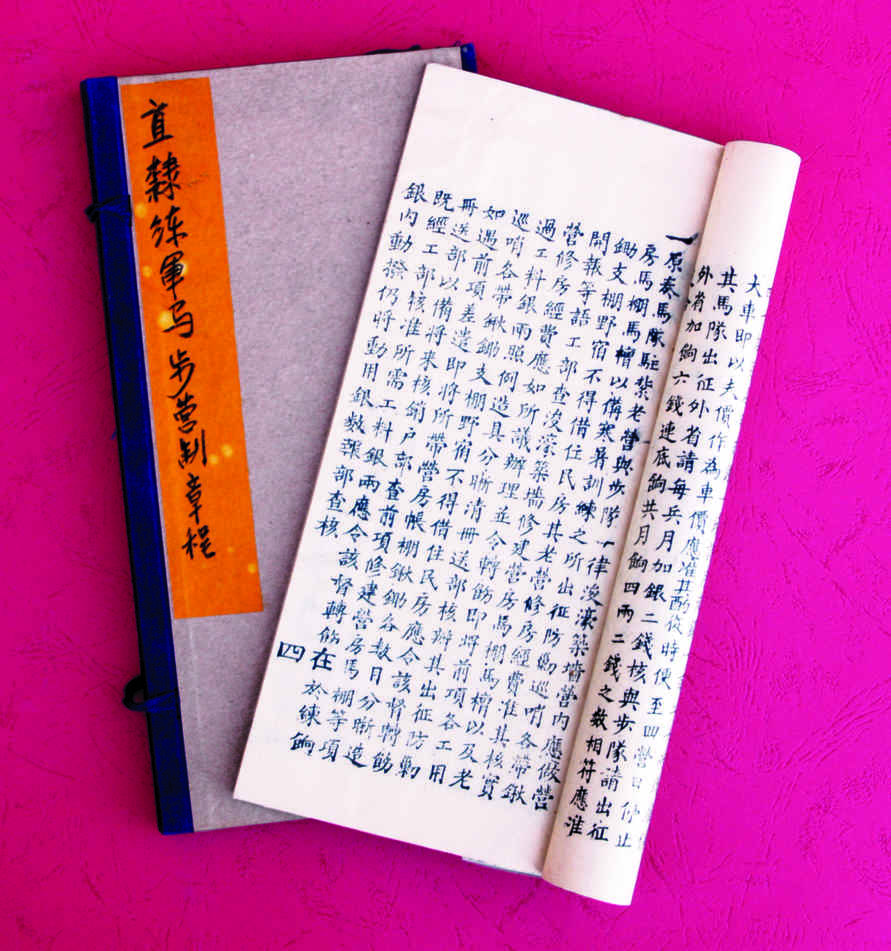 直隸练軍马步营制章程
大車即以夫價作為車價應准其酌
其馬隊出征外省請每兵月加銀二錢核與步隊請出征
外省加餉六錢連底餉共月餉四兩二錢之數相符應准
一原奏馬隊駐紮老營與步隊一律浚濠築墻營內應做營
房馬棚馬槽以備寒暑訓練之所出征防勦巡哨各帶鍬
鋤支棚野宿不得借住民房其老營修房經費准其核實
開報等語工部查浚濠築墻修建營房馬棚馬槽以及老
營修房經費應如所議辦理並令轉飭即將前項各工用
過工料銀兩照例造具分晰清冊送部核辦其出征防勦
巡哨各帶鍬鋤支棚野宿不得借住民房應令該督轉飭
如遇前項差遣即將所帶營房帳棚鍬鋤各數目分晰造
冊送部以備將来核銷戶部查前項修建營房馬棚等項
既經工部核准所需工料銀兩應令該督轉飭在於練餉
銀內動撥仍將動用銀數報部查核
四